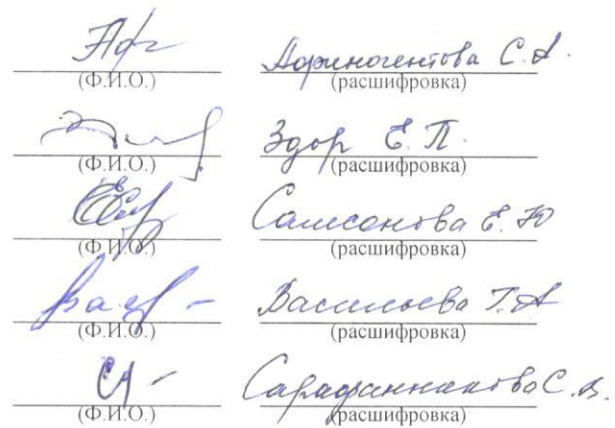 Афиногентова С.А.
(Ф.И.О.) (расшифровка)
Здор Е.П.
(Ф.И.О.) (расшифровка)
Самсонова Е.Ю
(Ф.И.О.) (расшифровка)
Васильева Т.А
(Ф.И.О.) (расшифровка)
С.В.
(Ф.И.О.) (расшифровка)